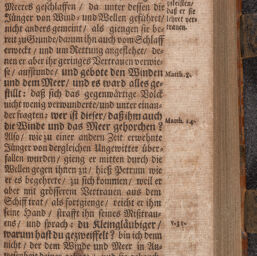 Meeres geschlaffen / da unter dessen die
Jünger von Wind- und Wellen geführet /
nicht anders gemeint / als giengen sie be-
reit zu Grunde / darum ihn auch vom Schlaff
erweckt / und um Rettung angeflehet / de-
nen er aber ihr geringes Vertrauen verwie-
se / aufstunde / und gebote den Winden
und dem Meer / und es ward alles ge-
stillt: daß sich das gegenwärtige Volck
nicht wenig verwunderte / und unter einan-
der fragten: wer ist dieser / daß ihm auch
die Winde und das Meer gehorchen?
Also / wie zu einer andern Zeit erwehnte
Jünger von dergleichen Ungewitter über-
fallen wurden / gieng er mitten durch die
Wellen gegen ihnen zu / hieß Petrum wie
er es begehrete / zu sich kommen / weil er
aber mit grösserem Vertrauen aus dem
Schiff trat / als fortgienge / reicht er ihm
seine Hand / strafft ihn seines Mißtrau-
ens / und sprach: du Kleingläubiger /
warum hast du gezweiffelt? bin ich denn
nicht / der dem Winde und Meer in An-
daß er sie
lehret ver-
trauen.
Matth. 8.
Matth. 14.
v. 31.